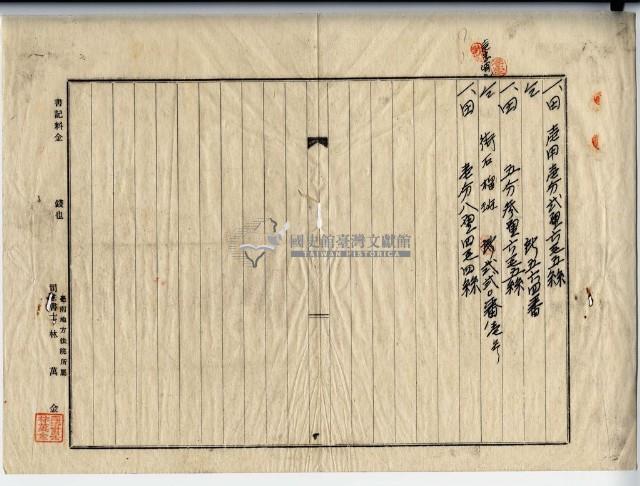 一、田 壱甲壱分弐厘六毛五絲
仝 五六四番
一、田 五分参厘六毛五絲
仝 街石榴班 弐弐〇番
一、田 壱分八厘四毛四絲
國史館臺灣文獻館
TAIWAN HISTORICA
書記料金 錢也
臺南地方法院所屬
司法書士 林萬金